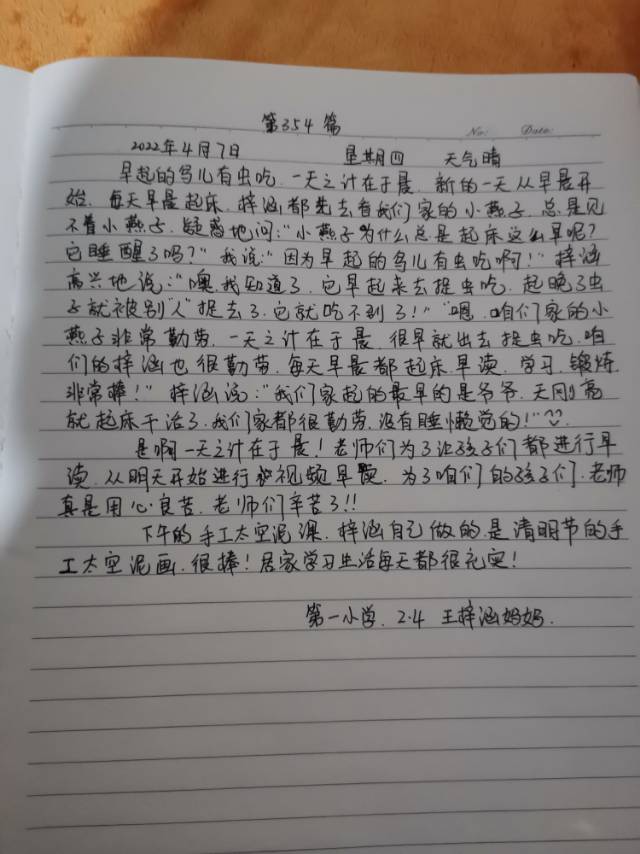 第354篇
No: Date:
2022年4月7日 星期四 天气晴
早起的鸟儿有虫吃.一天之计在于晨.新的一天从早晨开
始.每天早晨起床.梓涵都先去看我们家的小燕子.总是见
不着小燕子.疑惑地问:"小燕子为什么总是起床这么早呢?
它睡醒了吗?"我说:"因为早起的鸟儿有虫吃啊!"梓涵
高兴地说:"噢.我知道了.它早起来去捉虫吃.起晚了虫
子就被别"人"捉去了.它就吃不到了!""嗯.咱们家的小
燕子非常勤劳.一天之计在于晨.很早就出去捉虫吃.咱
们的梓涵也很勤劳.每天早晨都起床早读.学习.锻炼.
非常棒!"梓涵说:"我们家起的最早的是爷爷.天刚亮
就起床干活了.我们家都很勤劳.没有睡懒觉的!"
是啊一天之计在于晨!老师们为了让孩子们都进行早
读.从明天开始进行视频早读.为了咱们的孩子们.老师
真是用心良苦.老师们辛苦了!!
下午的手工太空泥课.梓涵自己做的是清明节的手
工太空泥画.很棒!居家学习生活每天都很充实!
第一小学.2.4 王梓涵妈妈.